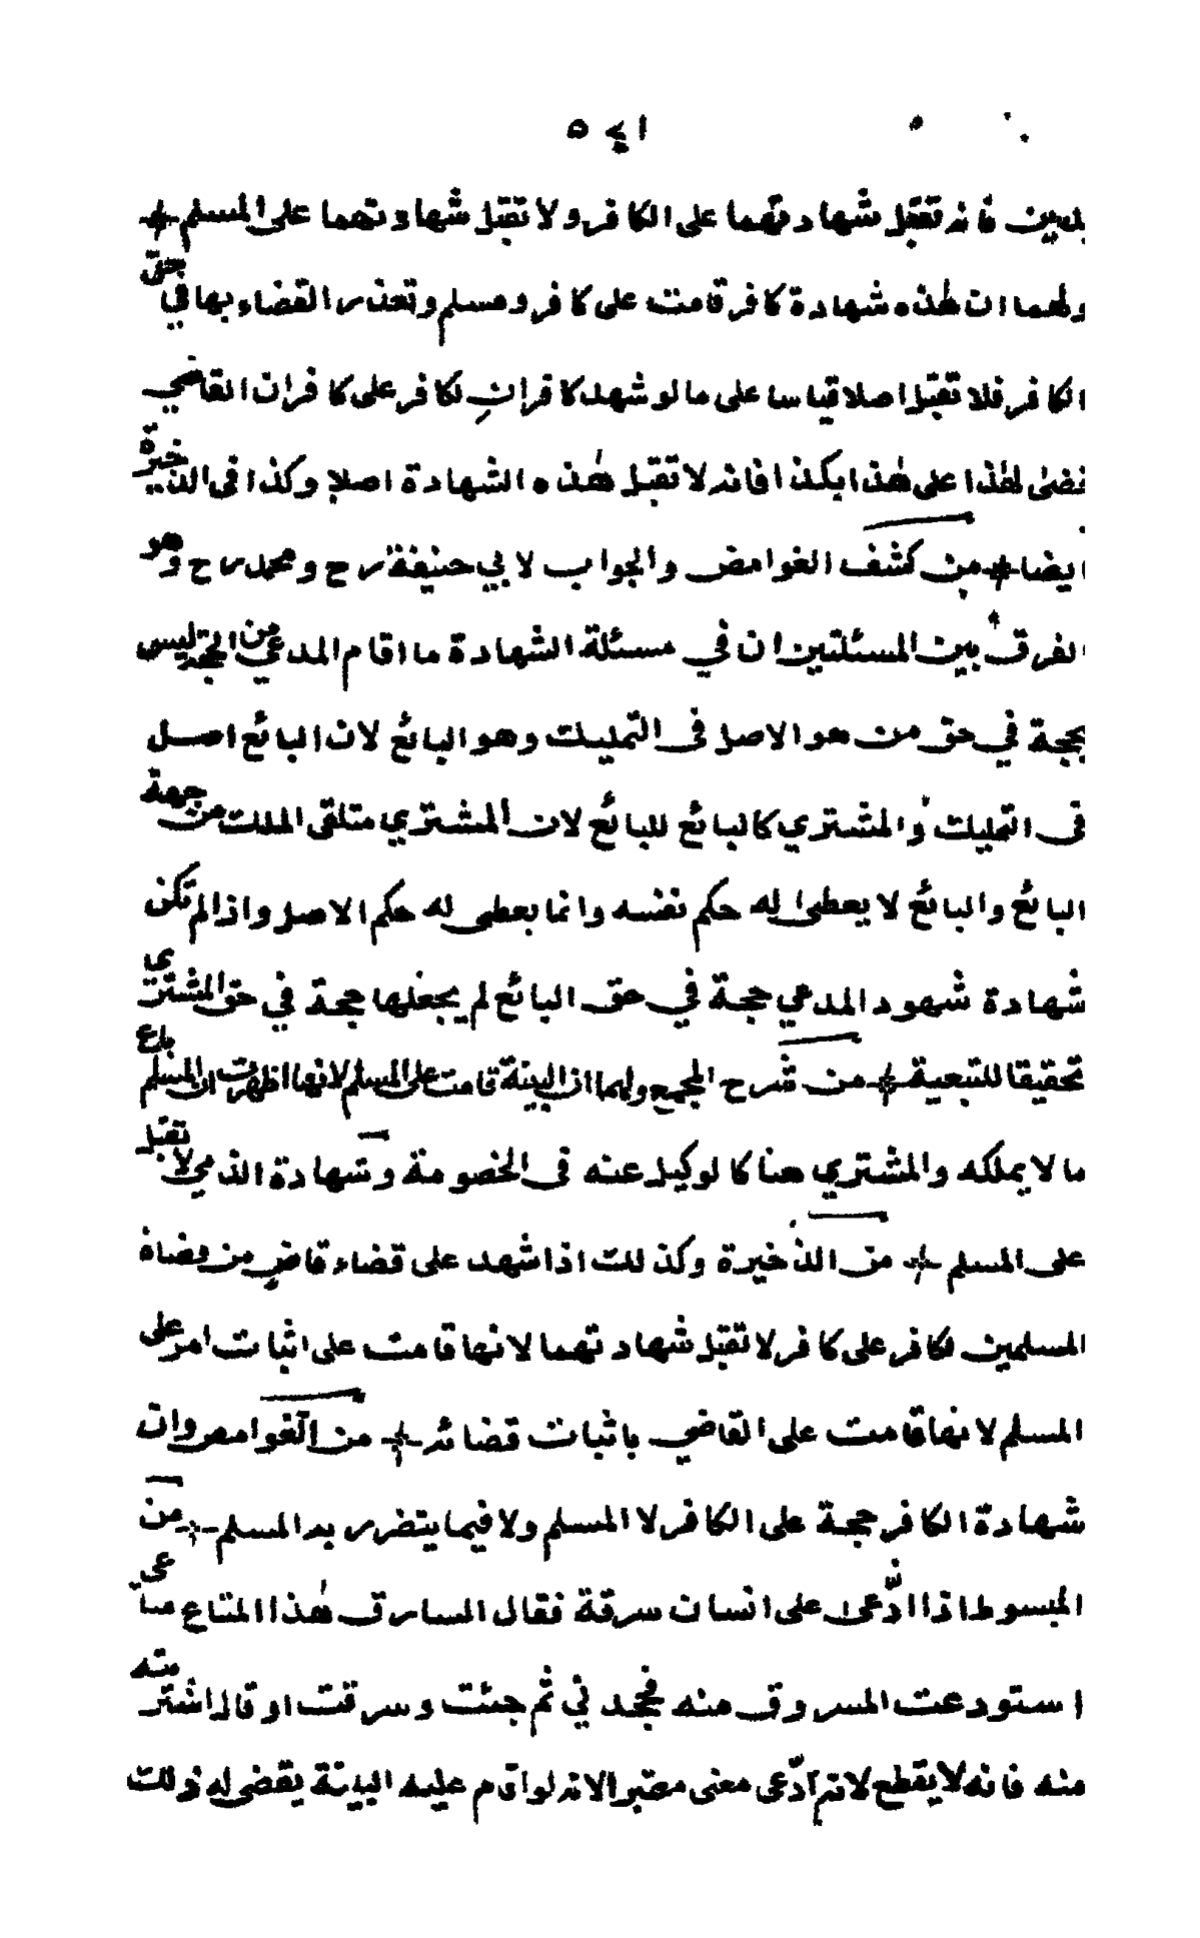 بدين فانه تقبل شهادتهما على الكافر ولا تقبل شهادتهما على المسلم
ولهما ان هذه شهادة كافر قامت على كافر ومسلم وتعذر القضاء بها في حق
الكافر فلا تقبل اصلا قياسا على ما لو شهد كافران لكافر على كافر ان القاضي
قضى لهذا على هذا بكذا فانه لا تقبل هذه الشهادة اصلا وكذا في الذخيرة
ايضا من كشف الغوامض والجواب لابي حنيفة رح ومحمد رح وهو
الفرق بين المسئلتين ان في مسئلة الشهادة ما اقام المدعي من الحجة ليس
بحجة في حق من هو الاصل في التمليك وهو البائع لان البائع اصل
في التمليك والمشتري كالبائع للبائع لان المشتري متلقى الملك من جهة
البائع والبائع لا يعطى له حكم نفسه وانما يعطى له حكم الاصل واذا لم تكن
شهادة شهود المدعي حجة في حق البائع لم يجعلها حجة في حق المشتري
تحقيقا للتبعية من شرح المجمع ولهما ان البينة قامت على المسلم لانها اظهرت ان المسلم باع
ما لا يملكه والمشتري هنا كالوكيل عنه في الخصومة وشهادة الذمي لا تقبل
على المسلم من الذخيرة وكذلك اذا شهد على قضاء قاض من قضاة
المسلمين لكافر على كافر لا تقبل شهادتهما لانها قامت على اثبات امر على
المسلم لانها قامت على القاضي باثبات قضائه من الغوامض وان
شهادة الكافر حجة على الكافر لا المسلم ولا فيما يتضرر به المسلم من
المبسوط اذا ادّعى على انسان سرقة فقال السارق هذا المتاع متاعي
استودعت المسروق منه فجحدني ثم جئت وسرقت او قال اشتريته
منه فانه لا يقطع لانه ادّعى معنى معتبرا لانه لو اقام عليه البينة يقضى له بذلك